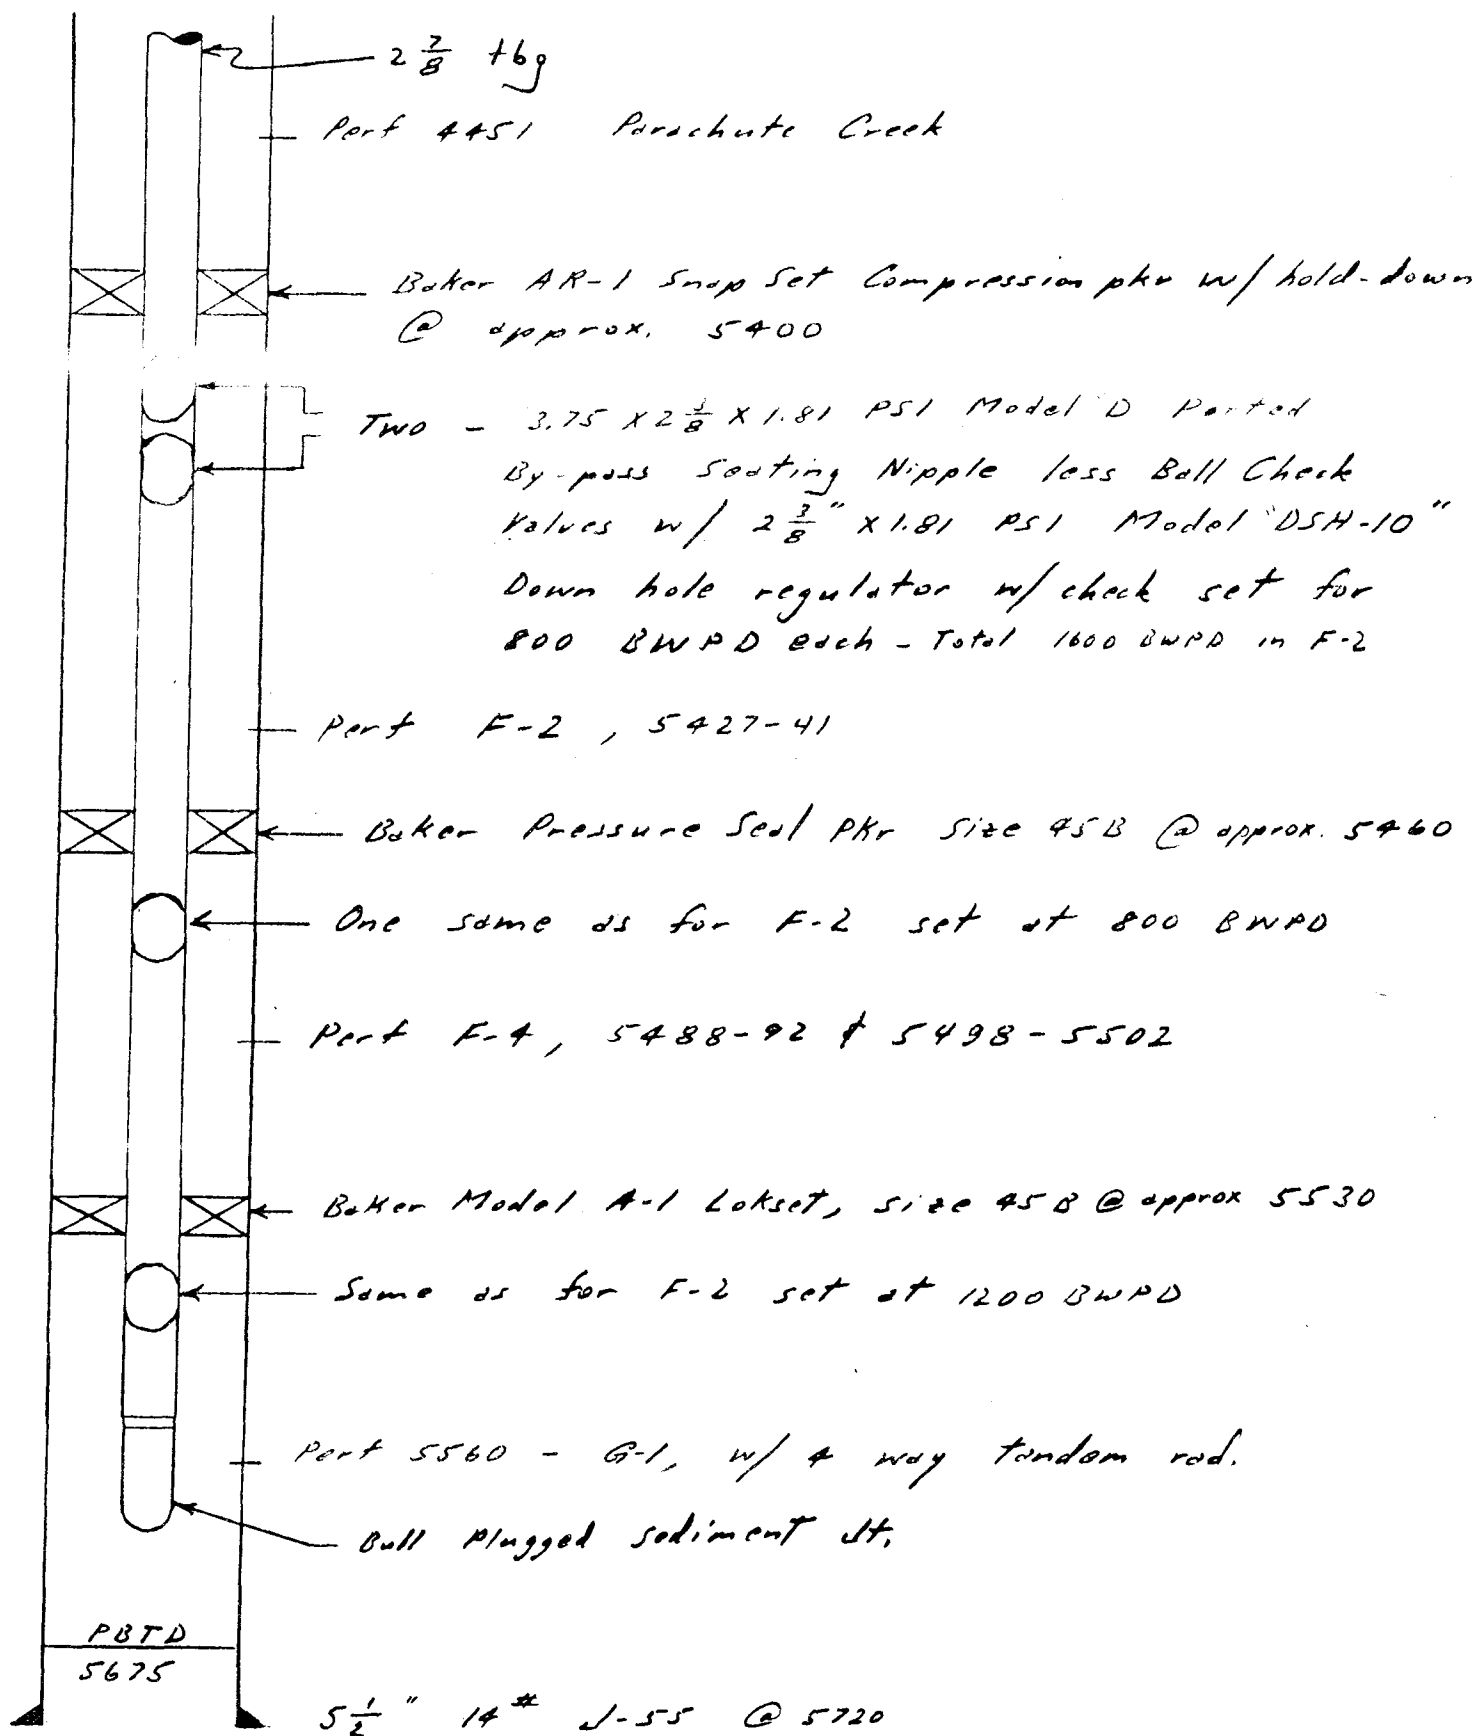 2 7/8 tbg
Perf 4451 Parachute Creek
Baker AR-1 Snap Set Compression pkr w/ hold-down
@ approx. 5400
Two - 3.75 x 2 3/8 x 1.81 PSI Model D Ported
By-pass Seating Nipple less Ball Check
Valves w/ 2 3/8" x 1.81 PSI Model "DSH-10"
Down hole regulator w/ check set for
800 BWPD each - Total 1600 BWPD in F-2
Perf F-2, 5427-41
Baker Pressure Seal Pkr Size 45B @ approx. 5460
One same as for F-2 set at 800 BWPD
Perf F-4, 5488-92 & 5498-5502
Baker Model A-1 Lokset, size 45B @ approx 5530
Same as for F-2 set at 1200 BWPD
Perf 5560 - G-1, w/ 4 way tandom rad.
Bull Plugged sediment Jt.
PBTD
5675
5 1/2" 14# J-55 @ 5720